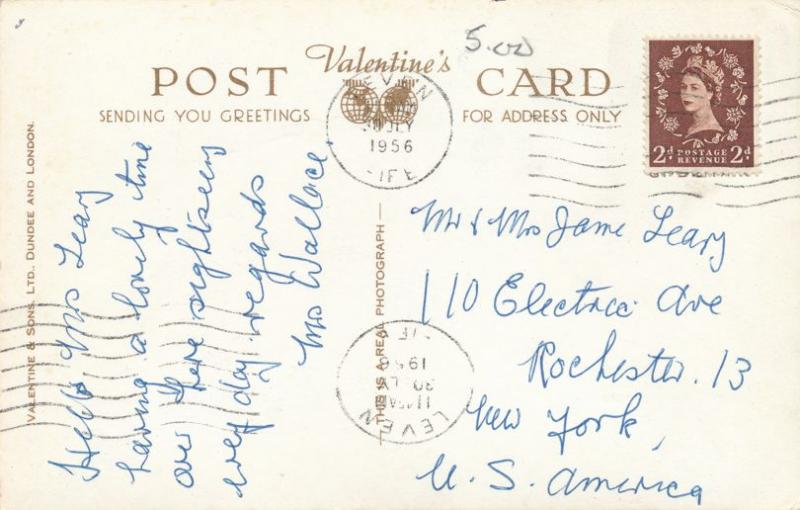 5.00
Valentine's
POST CARD
SENDING YOU GREETINGS FOR ADDRESS ONLY
LEVEN
JLY
1956
FIFE
2d POSTAGE REVENUE 2d
VALENTINE & SONS, LTD., DUNDEE AND LONDON.
Hello Mrs Leary
having a lovely time
over here sightseeing
every day regards
Mrs Wallace
THIS IS A REAL PHOTOGRAPH
Mr & Mrs Jame Leary
110 Electric Ave
Rochester. 13
New York,
U. S. America
LEVEN
11 45AM
30 JLY
1956
FIFE